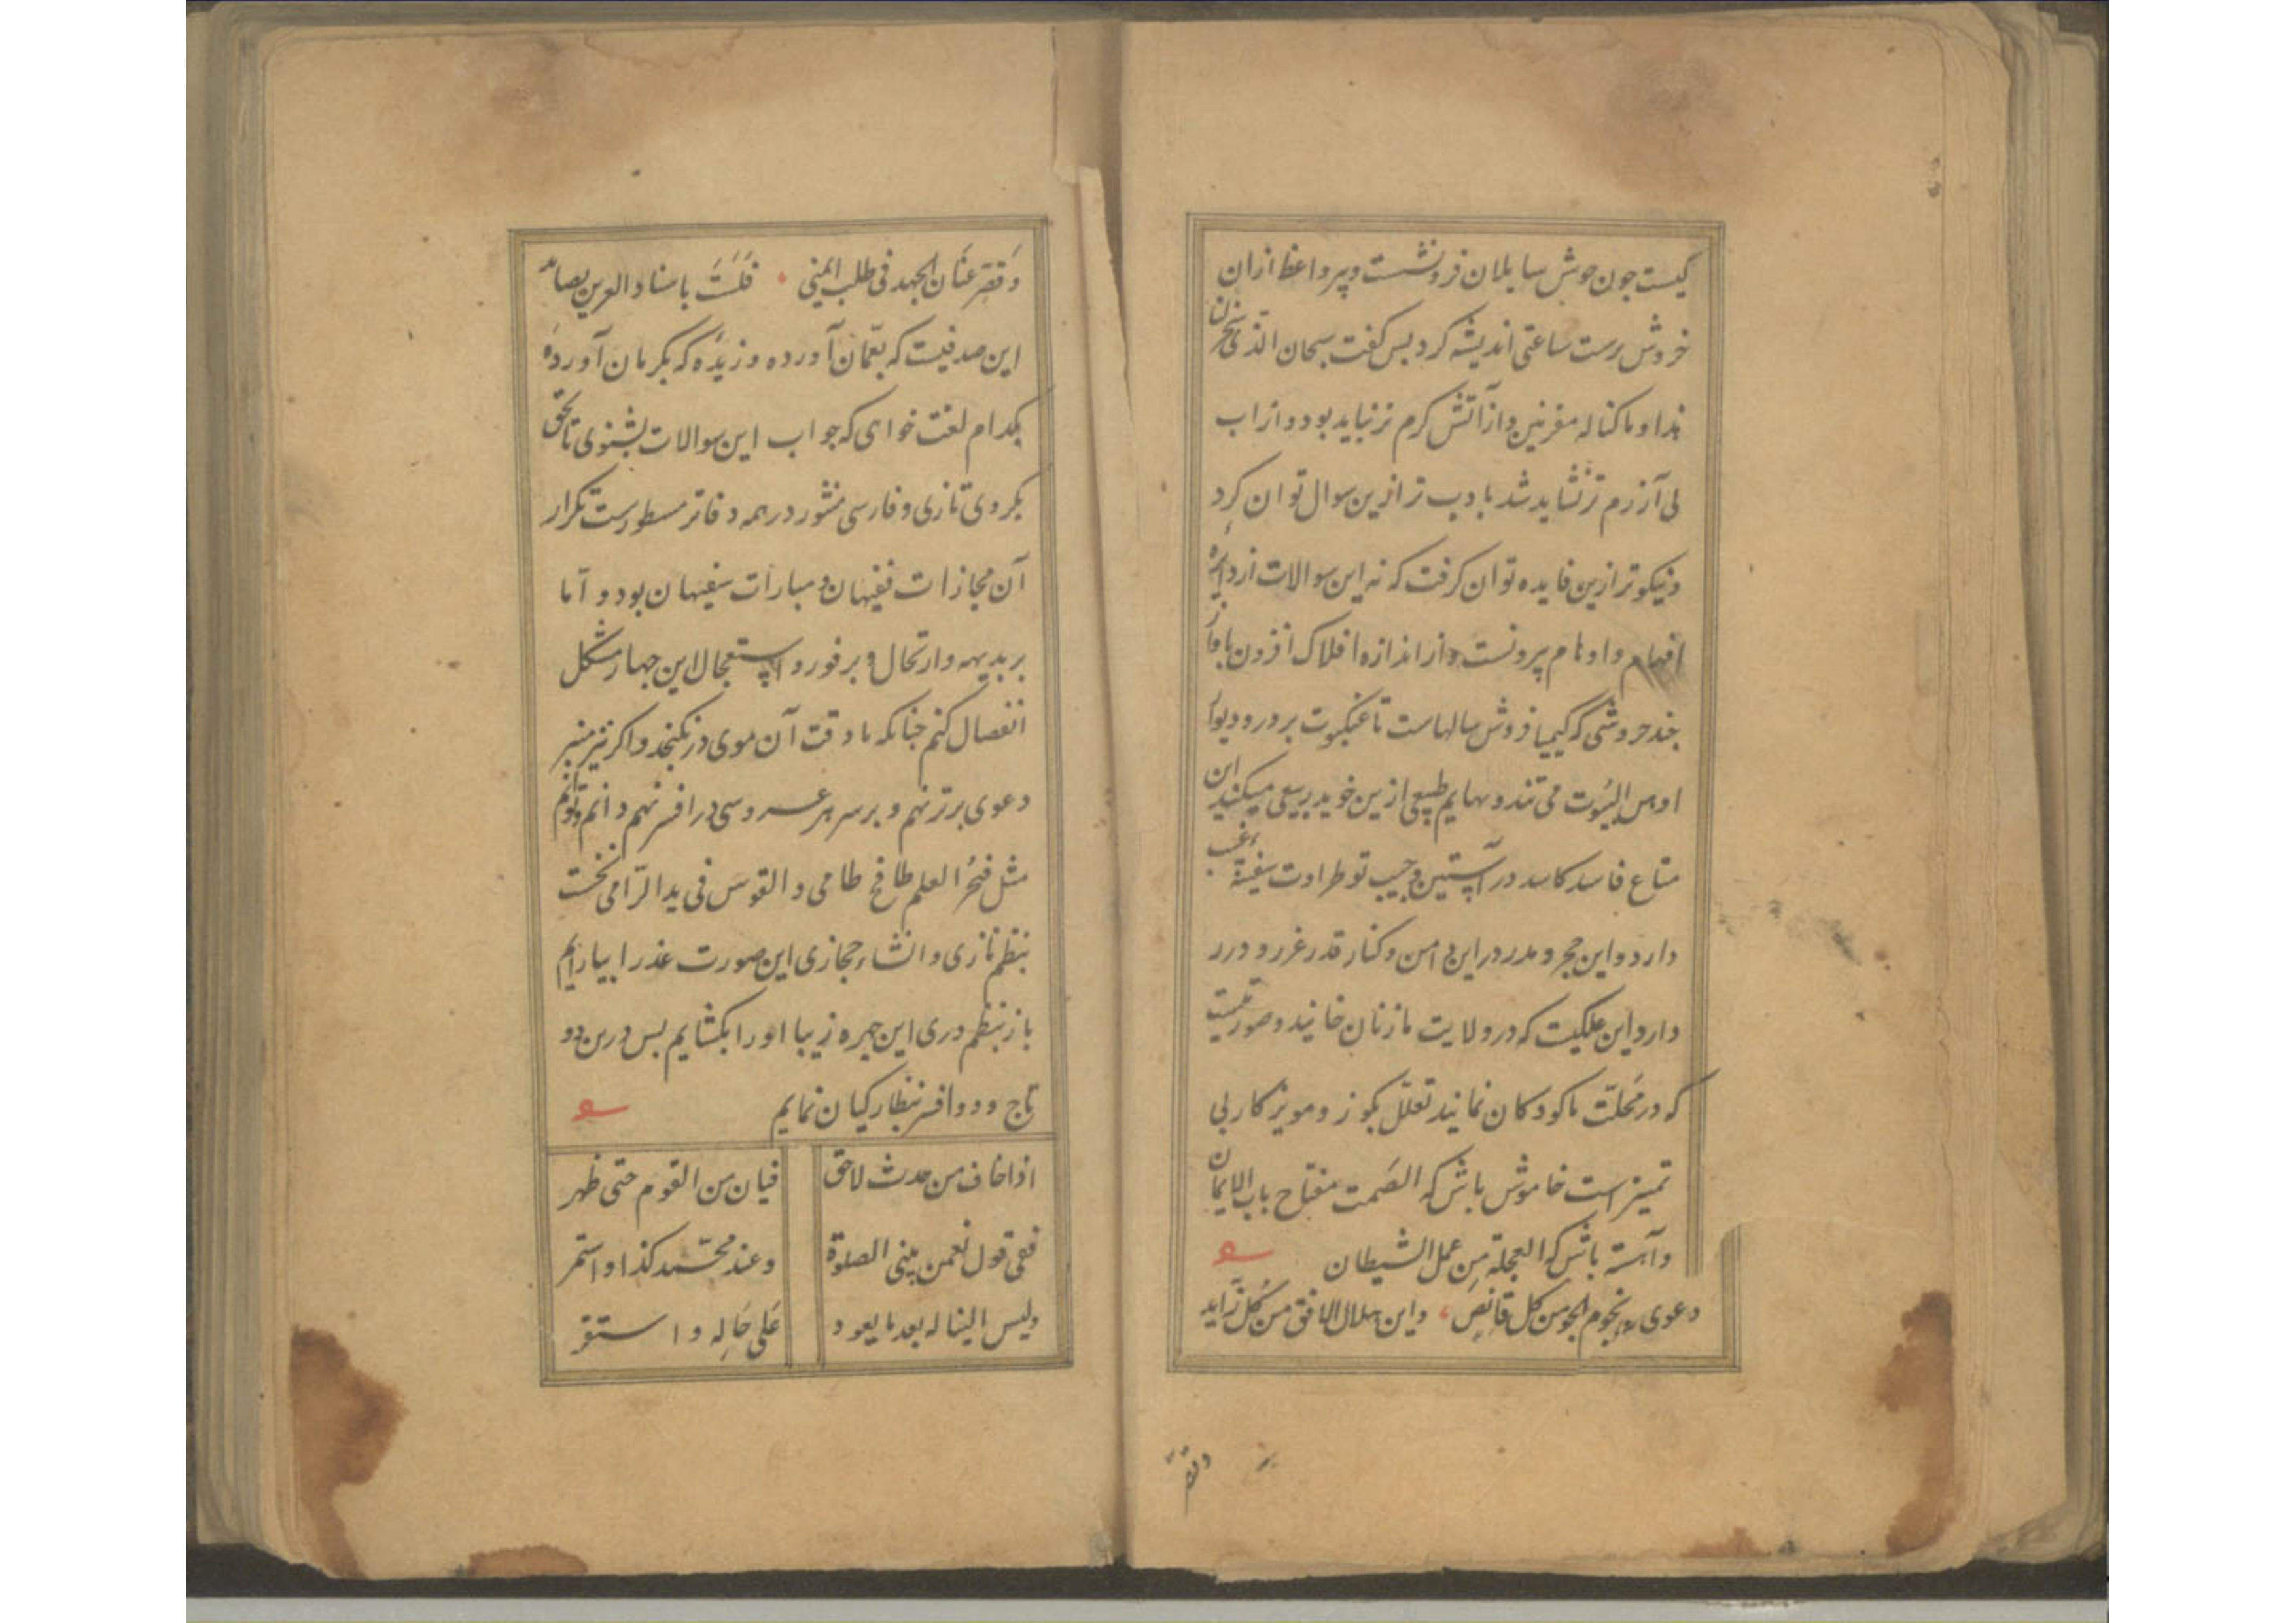 کیست جون جوش سایلان فرو نشست و پیر واعظ ازان
خروش برست ساعتی اندیشه کرد بس کفت سبحان الذی سخر لن
هذا وما کنا له مقرنین و از آتش کرم تر نباید بود و از اب
بی آزرم تر نشاید شد بادب تر ازین سوال توان کرد
و نیکوتر ازین فایده توان کرفت که نه این سوالات از دایرهٔ
افهام و اوهام بیرونست و از اندازه افلاک افزون باواز
بخند خروشی که کیمیا فروش سالهاست تا عنکبوت بر در و دیوار
اوهن البیوت می تند و بهایم طبیعی ازین خوید ربیعی میکنند این
متاع فاسد کاسد در آستین و جیب تو طراوت سفینهٔ غیب
دارد و این حجر و مدر در این دامن و کنار قدر غرر و درر
دارد این علکیت که در ولایت ما زنان خایند و صورتیست
که در محلت ما کودکان نمایند تعلل بکوز و مویز کار بی
تمیزانست خاموش باش که الصَمت مفتاح باب الایمان
و آهسته باش که العجلة مِن عمل الشیطان
دعوی نجوم الجو من کل قانِصٍ واین هلال الافق من کُل زاید
وقصر
وَقصِّر عنَان الجهد فی طلب المنی فَلَستَ باسناد العرین بصائد
این صدفیست که بعمّان آورده و زیره که بکرمان آوردهٔ
بکدام لغت خواهی که جواب این سوالات بشنوی تا بحق
بکروی تازی و فارسی منثور در همه دفاتر مسطورست تکرار
آن مجازات فقیهان و مبارات سفیهان بود و اما
بر بدیهه و ارتحال و بر فور و استعجال این جهار مشکل
انفصال کنم جنانکه با دقت آن موی در نکنجد و اکر نیز منبر
دعوی برتر نهم و بر سر هر عروسی در افسر نهم دانم و توانم
مثل فبحر العلم طافح طامی و القوس فی ید الرّامی نخست
بنظم تازی و انشاء حجازی این صورت عذرا بیارایم
باز بنظم دری این جهره زیبا او را بکشایم بس درین دو
تاج و دو افسر بنظارکیان نمایم
اذا خاف من حدث لاحق فیان من القوم حتی ظهر
ففی قول نعمن یبنی الصلوة وعند محمّد کذا و استمر
ولیس الینا له بعد ما یعود عَلی حَالِه و استقر